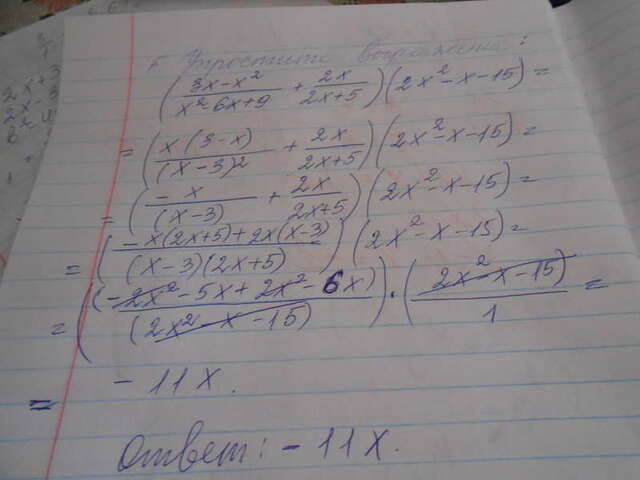 Упростите выражения:
(3x-x²/x²-6x+9 + 2x/2x+5)(2x²-x-15)=
=(x(3-x)/(x-3)² + 2x/2x+5)(2x²-x-15)=
=(-x/(x-3) + 2x/2x+5)(2x²-x-15)=
=(-x(2x+5)+2x(x-3)/(x-3)(2x+5))(2x²-x-15)=
=((-2x²-5x+2x²-6x)/(2x²-x-15))·((2x²-x-15)/1)=
= -11x.
Ответ: -11x.